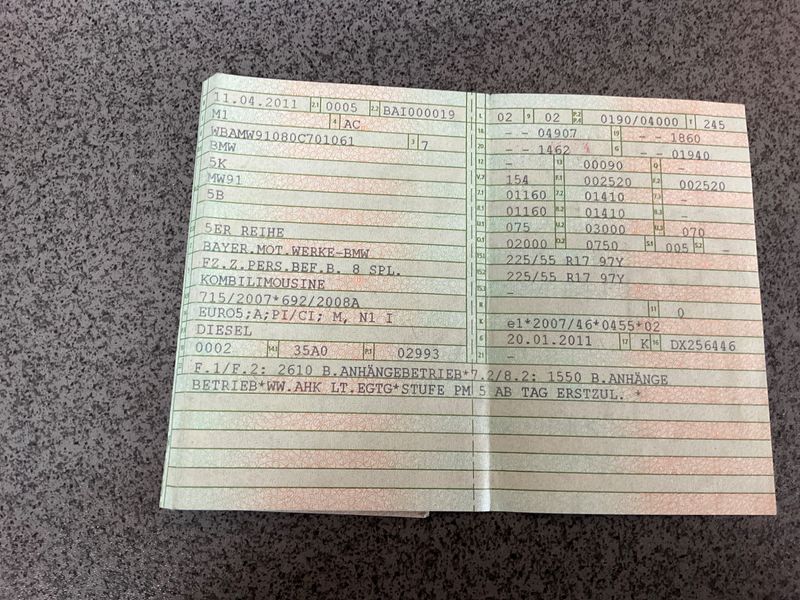 11.04.2011 2.1 0005 2.2 BAI000019
M1 4 AC
WBAMW91080C701061 3 7
BMW
5K
MW91
5B
5ER REIHE
BAYER.MOT.WERKE-BMW
FZ.Z.PERS.BEF.B. 8 SPL.
KOMBILIMOUSINE
715/2007*692/2008A
EURO5;A;PI/CI; M, N1 I
DIESEL
0002 14.1 35A0 P.1 02993
L 02 9 02 P.2 P.4 0190/04000 T 245
18 - - 04907 19 - - 1860
20 - - 1462 G - - 01940
12 - 13 00090 Q -
V.7 154 F.1 002520 F.2 002520
7.1 01160 7.2 01410 7.3 -
8.1 01160 8.2 01410 8.3 -
U.1 075 U.2 03000 U.3 070
O.1 02000 O.2 0750 S.1 005 S.2 -
15.1 225/55 R17 97Y
15.2 225/55 R17 97Y
15.3 -
R 11 0
K e1*2007/46*0455*02
6 20.01.2011 17 K 16 DX256446
21 -
F.1/F.2: 2610 B.ANHÄNGEBETRIEB*7.2/8.2: 1550 B.ANHÄNGE
BETRIEB*WW.AHK LT.EGTG*STUFE PM 5 AB TAG ERSTZUL. *